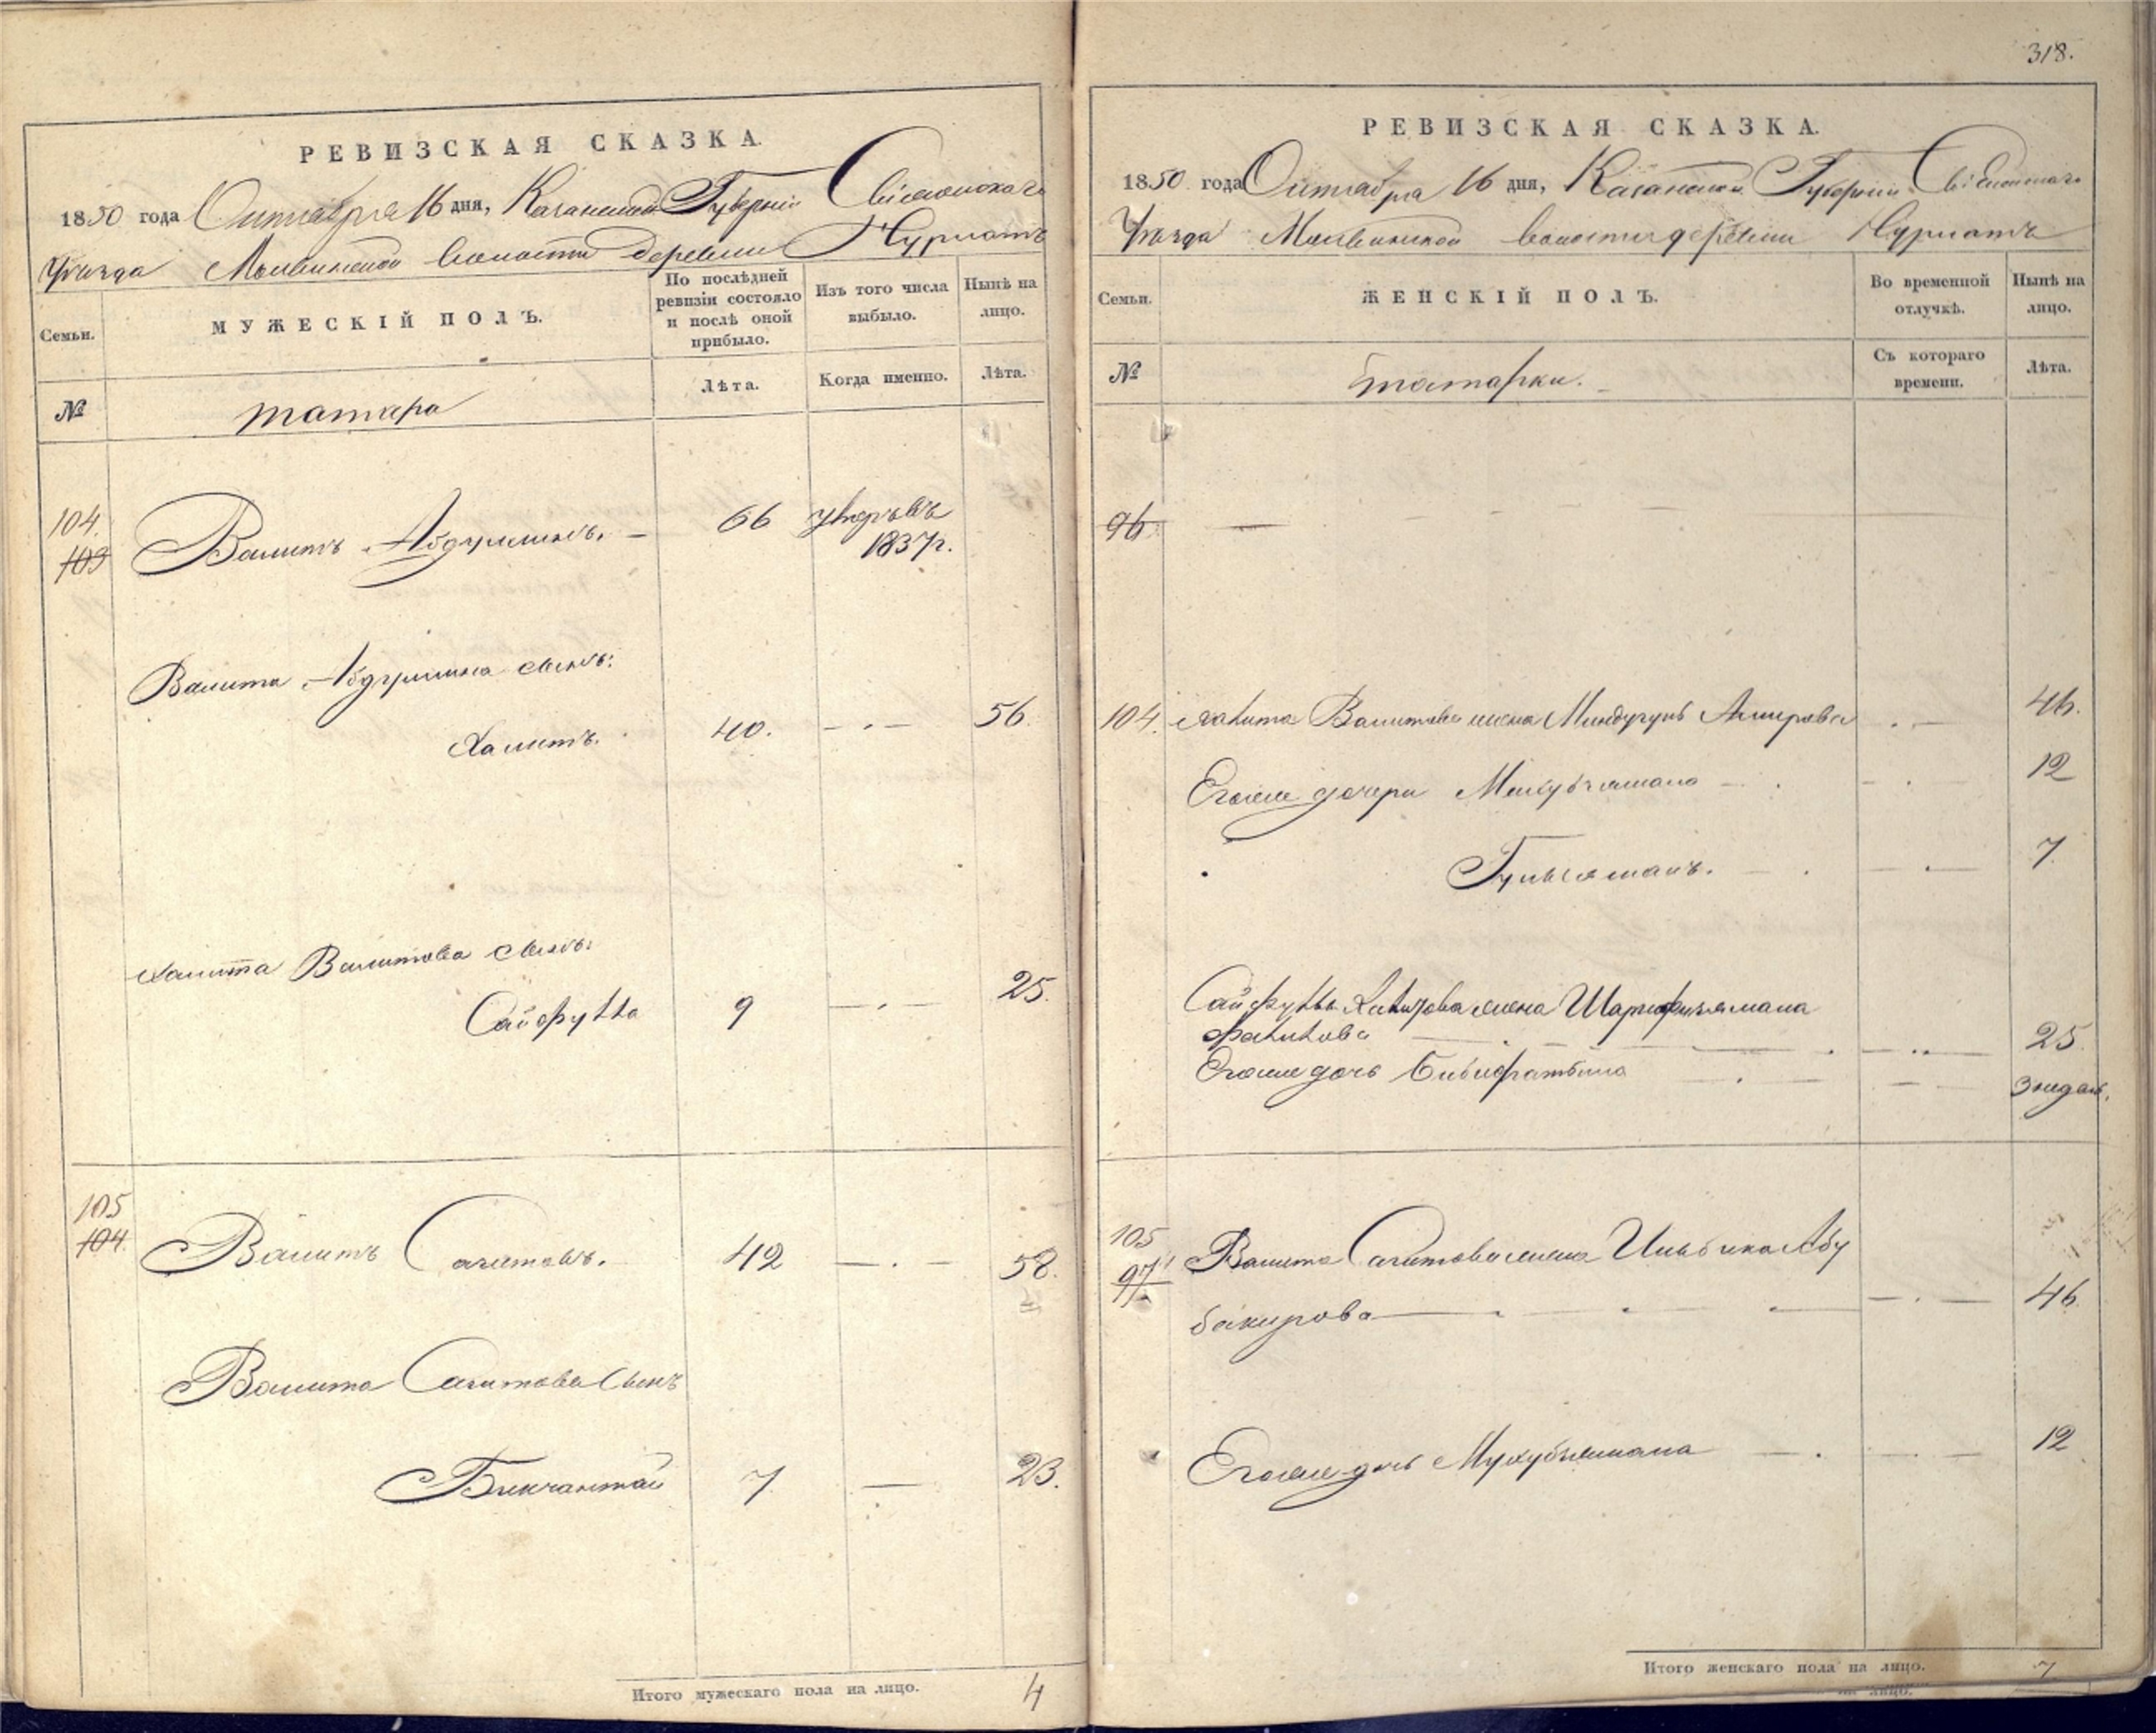 РЕВИЗСКАЯ СКАЗКА.
1850 года Октября 16 дня, Казанской Губерніи Свіяжскаго
Уѣзда волости деревни Нурлатъ
Семьи.
МУЖЕСКІЙ ПОЛЪ.
По послѣдней ревизіи состояло и послѣ оной прибыло.
Изъ того числа выбыло.
Нынѣ на лицо.
№
татара
Лѣта.
Когда именно.
Лѣта.
104.
103
Валитъ 66 умеръ въ
1837г.
Валита сынъ:
Халитъ. 40. 56.
Халита Валитова сынъ:
Сайфулла 9 25.
105
104.
Валитъ Сагитовъ. 42 58.
Валита Сагитова сынъ
Бикчантай 7 23.
Итого мужескаго пола на лицо. 4
318.
РЕВИЗСКАЯ СКАЗКА.
1850 года Октября 16 дня, Казанской Губерніи Свіяжскаго
Уѣзда волости деревни Нурлатъ
Семьи.
ЖЕНСКІЙ ПОЛЪ.
Во временной отлучкѣ.
Нынѣ на лицо.
№
татарки.
Съ котораго времени.
Лѣта.
96.
104. Халита Валитова жена Амирова 46.
Его же дочери 12
7
Сайфуллы жена
25
Его же дочь 3 недѣл.
105
97
Валита Сагитова жена Ильбика Абу
бакирова 46.
Его же дочь 12
Итого женскаго пола на лицо. 7
на лицо.